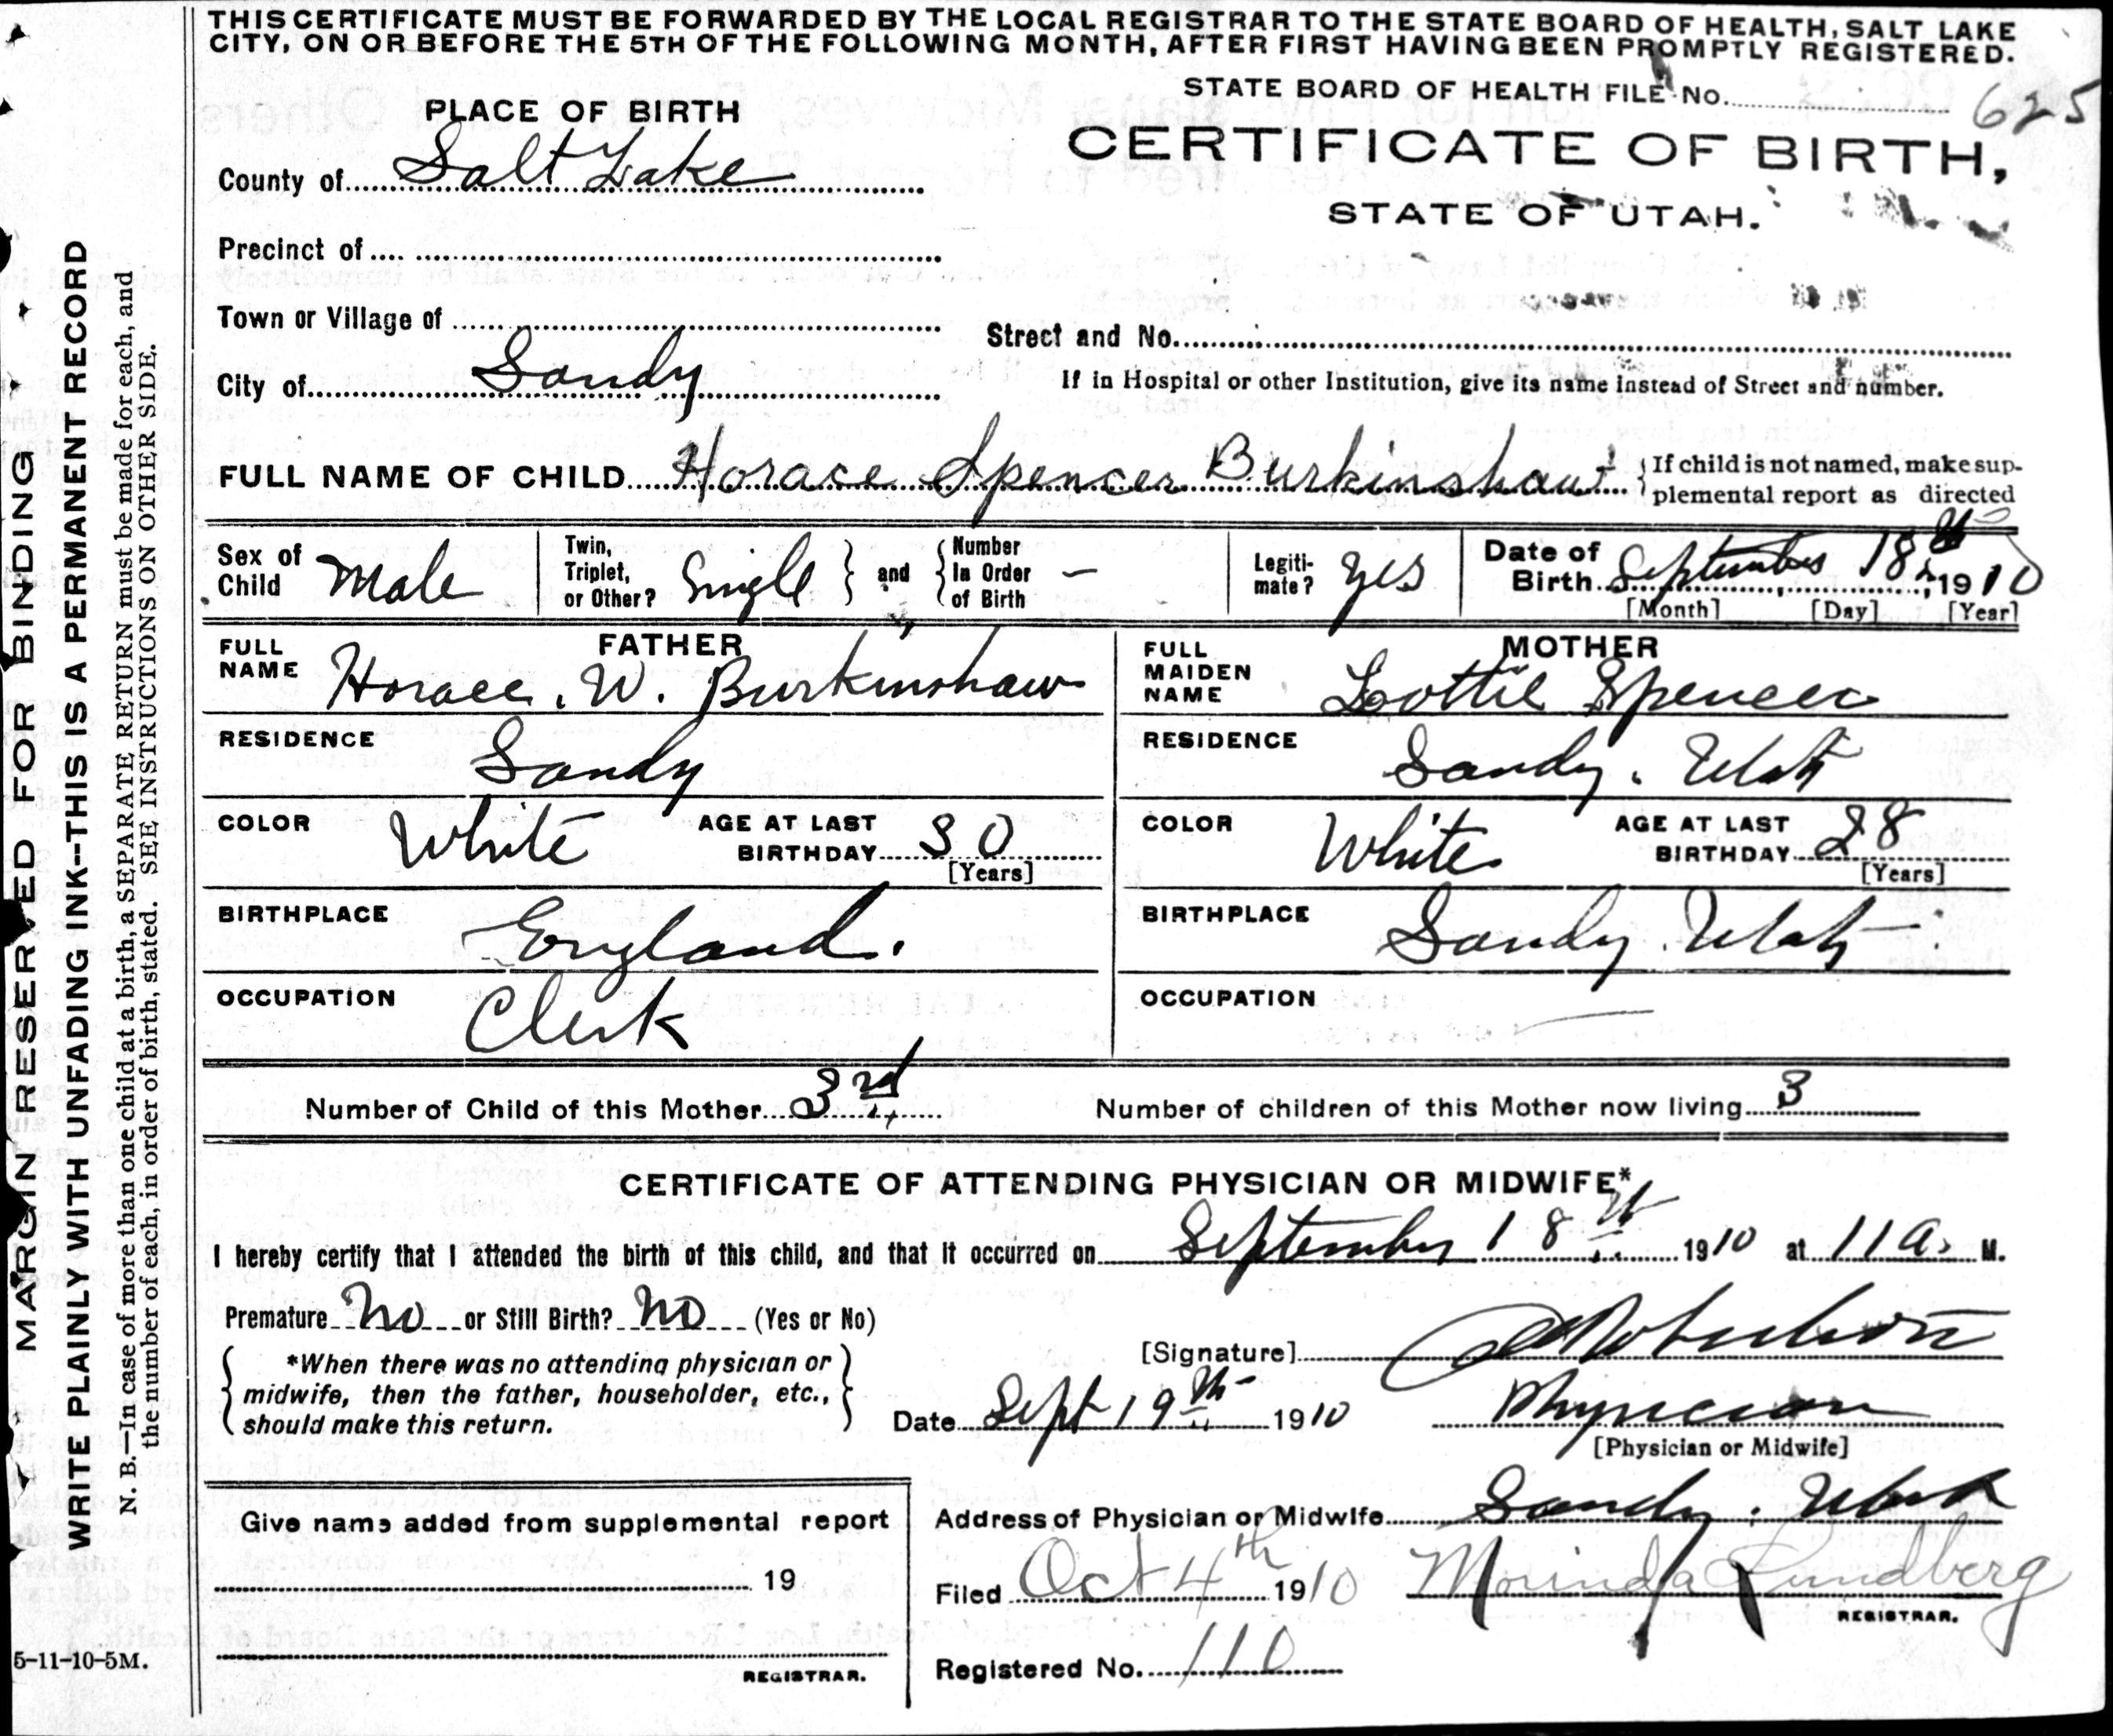 THIS CERTIFICATE MUST BE FORWARDED BY THE LOCAL REGISTRAR TO THE STATE BOARD OF HEALTH, SALT LAKE
CITY, ON OR BEFORE THE 5TH OF THE FOLLOWING MONTH, AFTER FIRST HAVING BEEN PROMPTLY REGISTERED.
STATE BOARD OF HEALTH FILE No. 625
PLACE OF BIRTH
CERTIFICATE OF BIRTH,
STATE OF UTAH.
County of Salt Lake
Precinct of
Town or Village of
Street and No.
City of Sandy
If in Hospital or other Institution, give its name instead of Street and number.
FULL NAME OF CHILD Horace Spencer Burkinshaw
{If child is not named, make sup-
plemental report as directed
Sex of Child Male
Twin, Triplet, or Other? Single } and { Number In Order of Birth —
Legiti-mate? Yes
Date of Birth September 18th, 1910
[Month] [Day] [Year]
FATHER
FULL NAME Horace. W. Burkinshaw
RESIDENCE Sandy
COLOR White AGE AT LAST BIRTHDAY 30
[Years]
BIRTHPLACE England.
OCCUPATION Clerk
MOTHER
FULL MAIDEN NAME Lottie Spencer
RESIDENCE Sandy. Utah
COLOR White AGE AT LAST BIRTHDAY 28
[Years]
BIRTHPLACE Sandy Utah
OCCUPATION —
Number of Child of this Mother 3rd
Number of children of this Mother now living 3
CERTIFICATE OF ATTENDING PHYSICIAN OR MIDWIFE*
I hereby certify that I attended the birth of this child, and that it occurred on September 18th 1910 at 11 a. M.
Premature No or Still Birth? No (Yes or No)
*When there was no attending physician or
midwife, then the father, householder, etc.,
should make this return.
[Signature] Robertson
Date Sept 19th 1910
Physician
[Physician or Midwife]
Give name added from supplemental report
19
REGISTRAR.
Address of Physician or Midwife Sandy. Utah
Filed Oct 4th 1910 Morinda Lundberg
REGISTRAR.
Registered No. 110
MARGIN RESERVED FOR BINDING
WRITE PLAINLY WITH UNFADING INK--THIS IS A PERMANENT RECORD
N. B.—In case of more than one child at a birth, a SEPARATE RETURN must be made for each, and
the number of each, in order of birth, stated. SEE INSTRUCTIONS ON OTHER SIDE.
5-11-10-5M.